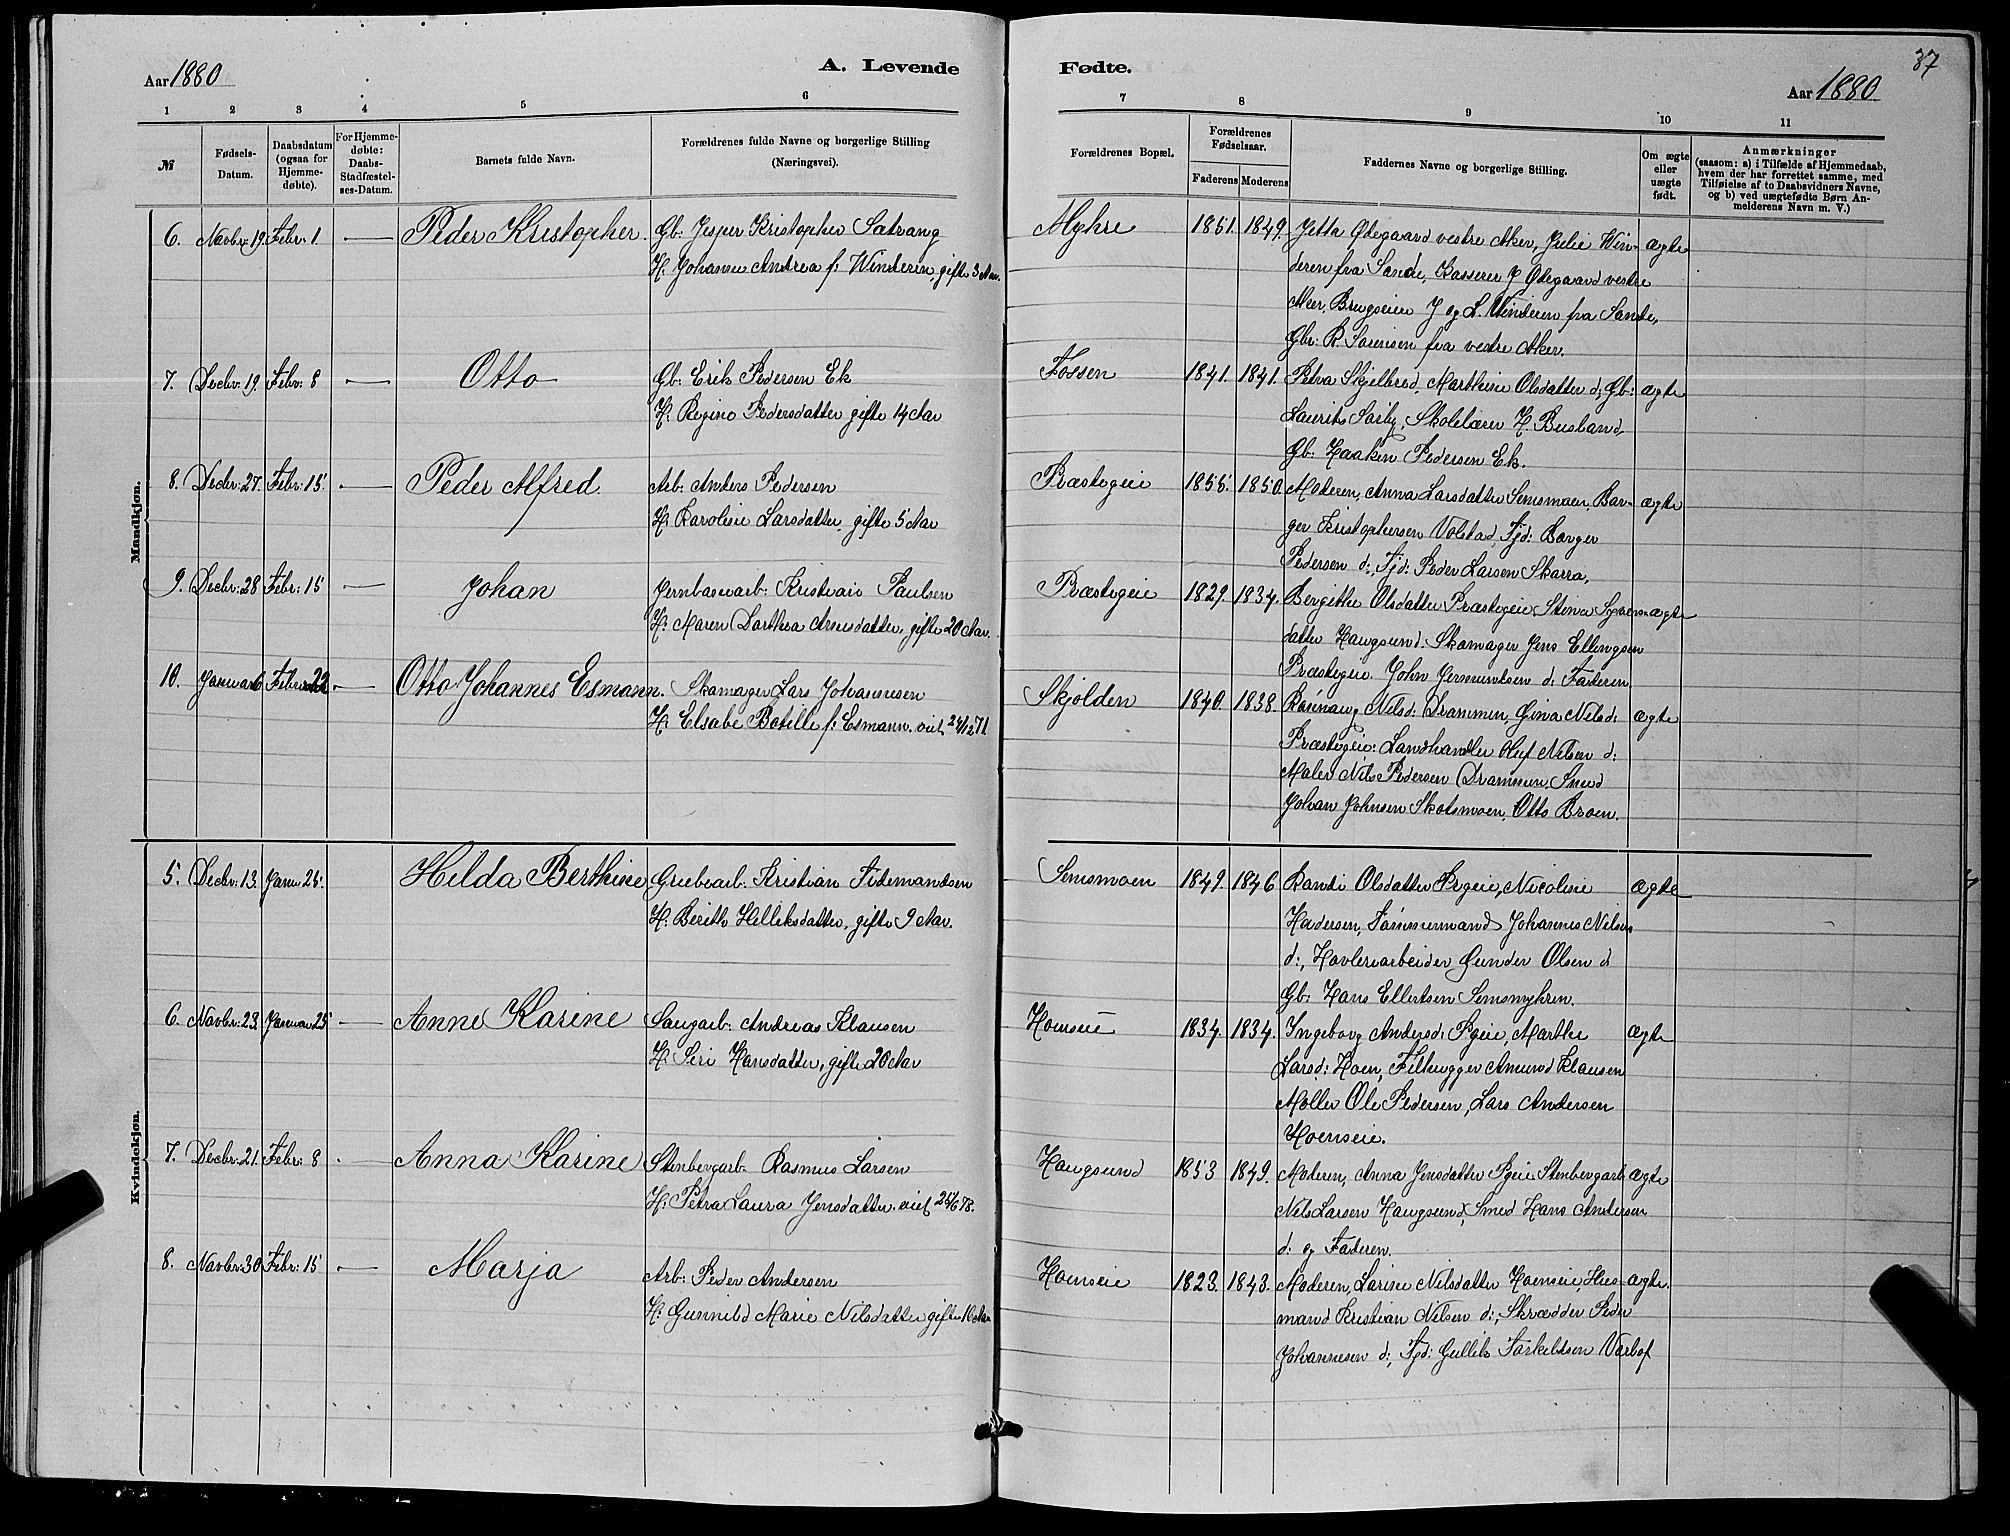 37
Aar 1880
A. Levende
Fødte.
Aar 1880
1 2 3 4 5 6 7 8 9 10 11
№
Fødsels-
Datum.
Daabsdatum
(ogsaa for
Hjemme-
døbte).
For Hjemme-
døbte:
Daabs-
Stadfæstel-
ses-Datum.
Barnets fulde Navn.
Forældrenes fulde Navne og borgerlige Stilling
(Næringsvei).
Forældrenes Bopæl.
Forældrenes
Fødselsaar.
Faderens Moderens
Faddernes Navne og borgerlige Stilling.
Om ægte
eller
uægte
født.
Anmærkninger
(saasom: a) i Tilfælde af Hjemmedaab,
hvem der har forrettet samme, med
Tilføielse af to Daabsvidners Navne,
og b) ved uægtefødte Børn An-
melderens Navn m. V.)
Mandkjøn.
6. Novbr: 19. Febr: 1 — Peder Kristopher. Gb: Jesper Kristopher Satrang
H. Johanne Andrea f: Winderen, gifte 3 Aar.
Myhre 1851. 1849. Jetta Ødegaard vestre Aker, Julie Win- ægte
deren fra Sande, Kasserer J Ødegaard vestre
Aker, Brugseier J og L. Winderen fra Sande,
Gbr: R. Sørensen fra vestre Aker.
7. Decbr: 19. Febr: 8 — Otto Gb: Erik Pedersen Ek
H: Regine Pedersdatter gifte 14 Aar
Fossen 1841. 1841. Petra Skjelbred, Marthine Olsdatter d; Gb: ægte
Laurits Sørby, Skolelærer H. Busland,
Gb: Haaken Pedersen Ek.
8. Decbr: 27. Febr: 15. — Peder Alfred. Arb: Anders Pedersen
H: Karoline Larsdatter, gifte 5 Aar
Præstegeie 1855. 1850. Moderen, Anna Larsdatter Semsmoen, Bor- ægte
ger Kristophersen Volstad, Fjd: Borger
Pedersen d:, Fjd: Peder Larsen Skarra,
9. Decbr: 28 Febr: 15 — Johan Jernbanearb: Kristian Paulsen
H: Maren Dorthea Arnesdatter, gifte 20 Aar.
Præstegeie 1829. 1834. Bergitte Olsdatter Præstegeie, Stina Syvers- ægte
datter Haugsund. Skomager Jens Ellingsen
Præstegeie John Jermundsen d: Faderen
10. Januar 6 Februar 22 — Otto Johannes Esmann. Skomager Lars Johannesen
H. Elsabe Botille f: Esmann. viet 24/12 71
Skjolden 1840. 1838. Rønnaug Nilsd: Drammen, Gina Nilsd: ægte
Præstegeie: Landhandler Oluf Nilsen d:
Maler Nils Pedersen Drammen, Smed
Johan Johnsen Skotsmoen, Otto Broen.
Kvindekjøn.
5. Decbr: 13. Janu 25. Hilda Berthine Grubearb: Kristian Tidemandsen
H: Berith Helliksdatter, gifte 9 Aar.
Semsmoen 1849. 1846 Randi Olsdatter Prgeie, Nicoline ægte
Hadersen, Tømmermand Johannes Nilsen
d:, Høvleriarbeider Gunder Olsen d
Gb: Hans Ellertsen Semsmyhren.
6. Novbr: 23. Januar 25 — Anne Karine Saugarb: Andreas Klausen
H: Siri Hansdatter, gifte 20 Aar
Hoenseie 1834. 1834. Ingeborg Andersd: Prgeie, Marthe ægte
Larsd: Hoen, Filhugger Amund Klausen
Møller Ole Pedersen, Lars Andersen
Hoenseie.
7. Decbr: 21. Febr: 8 Anna Karine Stenbergarb. Rasmus Larsen
H: Petra Laura Jensdatter. viet 24/6 78.
Haugsund 1853 1849. Moderen, Anna Jensdatter Prgeie Stenbergarb ægte
Nils Larsen Haugsund, Smed Hans Andersen
d: og Faderen.
8. Novbr: 30 Febr: 15 — Marja Arb: Peder Andersen
H: Gunnild Marie Nilsdatter gifte 16 Aar
Hoenseie 1823. 1843. Moderen, Larine Nilsdatter Hoenseie, Hus- ægte.
mand Kristian Nilsen d:, Skrædder Peder
Johannesen d:, Fjd: Gullik Torkildsen Varlof